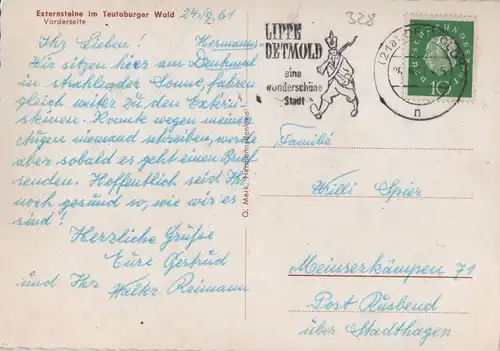 Externsteine im Teutoburger Wald
Vorderseite
24.9.61
328
LIPPE
DETMOLD
eine
wunderschöne
Stadt
(21a) DETMOLD
n
DEUTSCHE BUNDESPOST
10
Ihr Lieben! Hermanns-
Wir sitzen hier am Denkmal
in strahlender Sonne, fahren
gleich weiter zu den Extern-
steinen. Konnte wegen meiner
Augen niemand schreiben, werde
aber sobald es geht einen Brief
senden. Hoffentlich seid Ihr
noch gesund so, wie wir es
sind!
Herzliche Grüße
Eure Gertrud
und Ihr Walter Reimann
O. Merk, Hermannsdenkmal
Familie
Willi Spier
Meinserkämpen 71
Post Rusbend
über Stadthagen